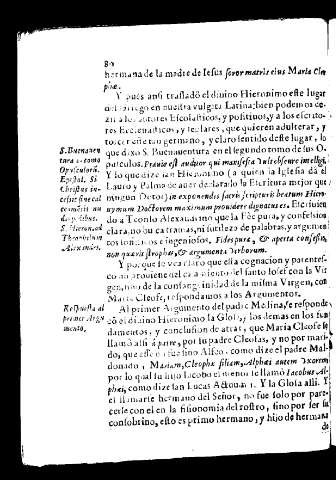 80
hermana de la madre de Iesus soror matris eius Maria Cleophæ.
Y pues ansi trasladó el divino Hieronimo este lugar
del Griego en nuestra vulgata Latina; bien podemos de-
zir a los autores Escolasticos, y positivos, y a los escrito-
res Ecclesiasticos, y seglares, que quieren adulterar, y
torcer este tan germano, y claro sentido deste lugar, lo
que dixo S. Buenaventura en el segundo tomo de sus O-
pusculos.
Y lo que dize san Hieronimo (a quien la Iglesia dá el
Lauro y Palma de aver declarado la Escritura mejor que
ningun Dotor) in exponendis sacris Scripturis beatum Hiero-
nymum Doctorem maximum providere dignatus es. Escrivien
do a Teofilo Alexandrino que la Fè pura, y confesion
clara, no busca tramas, ni sutileza de palabras, y argumen
tos ionicos e ingeniosos, Fides pura, & aperta confessio,
non quærit strophas, & argumenta verborum.
Y porque se vea claro que ella cognacion y parentes-
co no proviene del casamiento del santo Iosef con la Vir
gen, sino de la consanguinidad de la misma Virgen, con
Maria Cleofe, respondamos a los Argumentos.
Al primer Argumento del padre Medina, se responde
cõ el divino Hieronimo la Glosa, y los demas en los fun
damentos, y conclusion de atras, que Maria Cleofe se
llamó assi à patre, por su padre Cleofas, y no por mari-
do, que este fue Alfeo. como dize el padre Mal-
donado, Mariam, Cleophæ filiam, Alphæi autem Vxorem
por lo qual su hijo Iacobo el menor se llamó Iacobus Al-
phæi, como dize san Lucas Actuum 1. Y la Glosa alli. Y
el llamarse hermano del Señor, no fue solo por pare-
cerse con el en la fisionomia del rostro, sino por ser su
consobrino, esto es primo hermano, y hijo de hermana
de
S. Buenaven
tura 2. tomo
Opusculorũ.
Epist. Si
Christus in-
S. Hieron. ad
Theophilum
Alexandrí.
Respuesta al
primer Argu
mento.